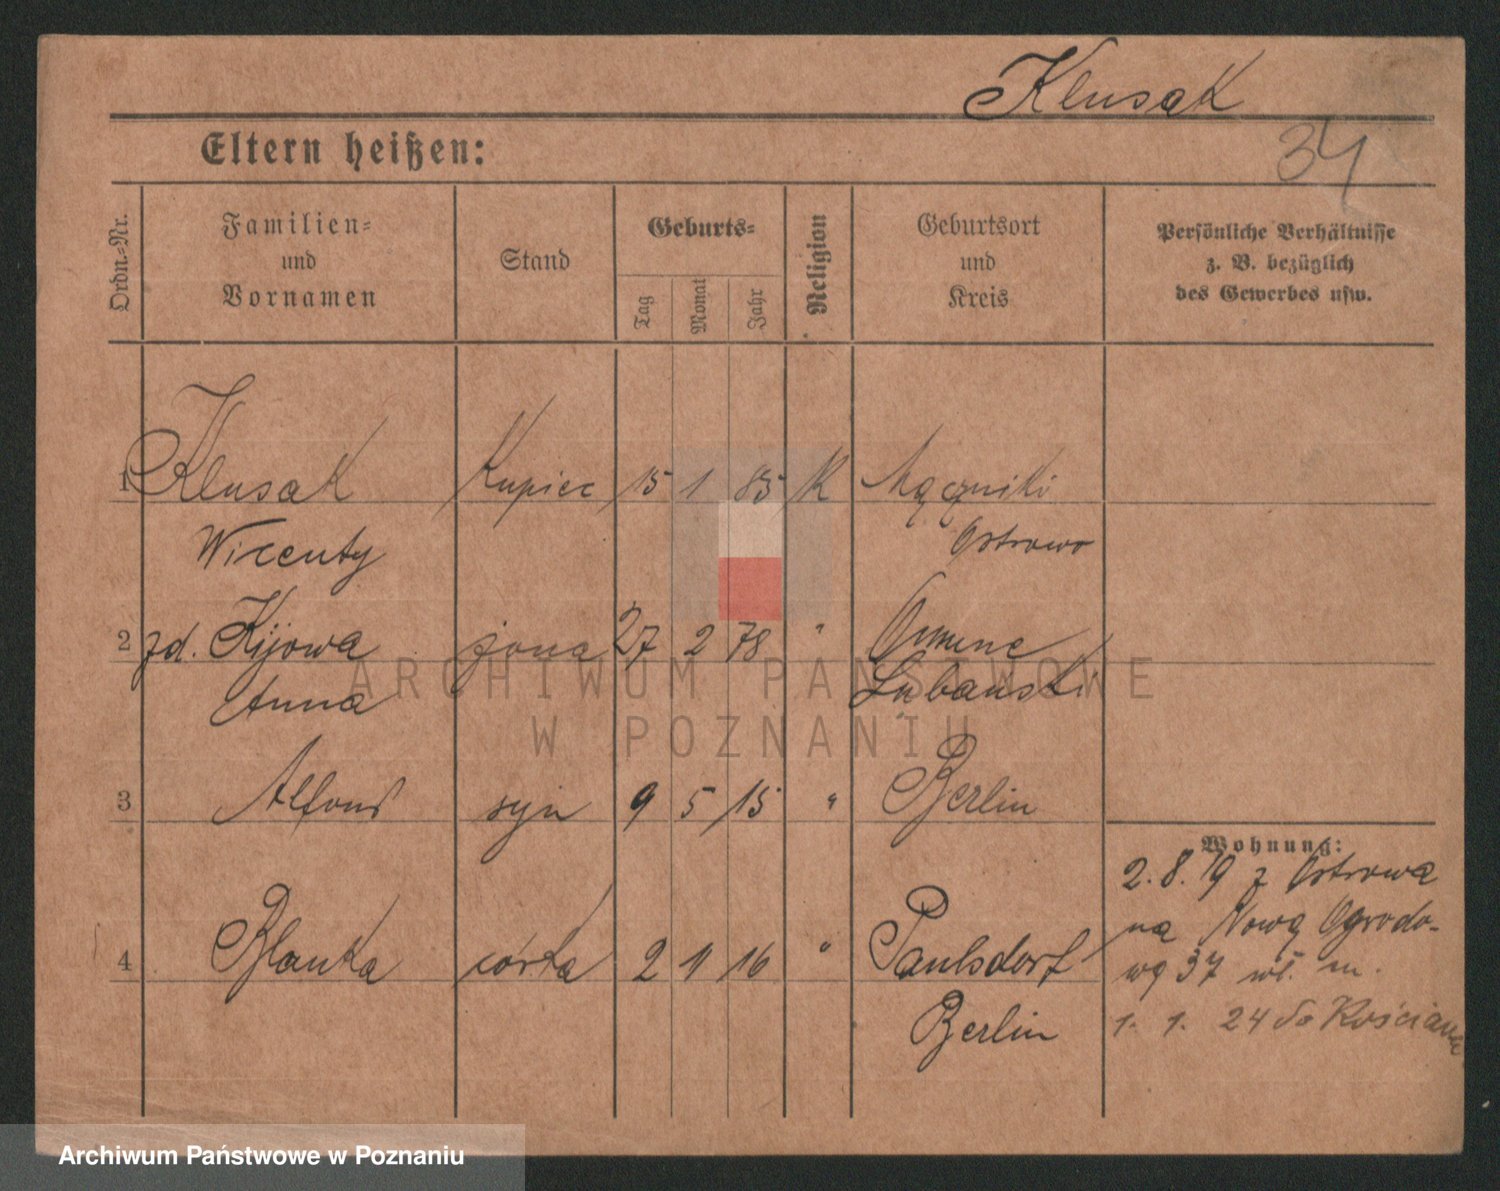 Klusak
34
Eltern heißen:
Ordn.-Nr.
Familien-
und
Vornamen
Stand
Geburts-
Tag
Monat
Jahr
Religion
Geburtsort
und
Kreis
Persönliche Verhältnisse
z. B. bezüglich
des Gewerbes usw.
1 Klusak Kupiec 15 1 85 K Mączniki
Wicenty Ostrowo
2 zd. Kijowa żona 27 2 78 "
Anna Lubański
3 Alfons syn 9 5 15 " Berlin
Wohnung:
2.8.19 z Ostrowa
na Nową Ogrodo-
wą 37 wł. m.
4 Blanka córka 2 11 16 " Paulsdorf
Berlin
1. 1. 24 do Kościana
ARCHIWUM PAŃSTWOWE
W POZNANIU
Archiwum Państwowe w Poznaniu